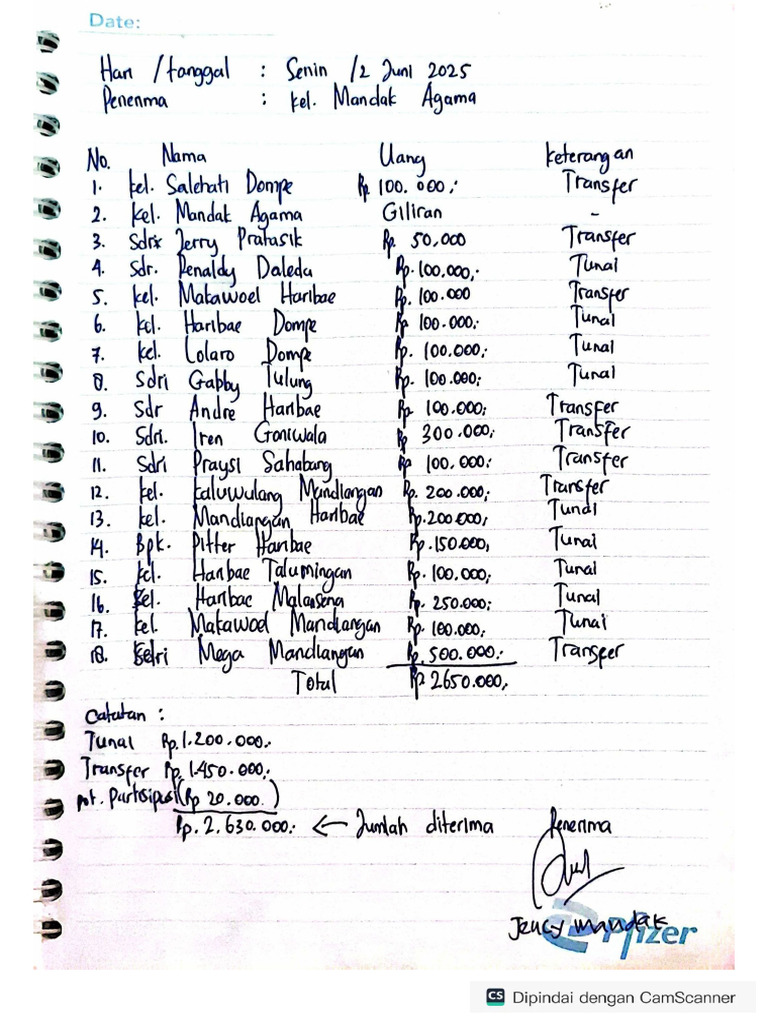 Date:
Hari / tanggal : Senin / 2 Juni 2025
Penerima : kel. Mandak Agama
No. Nama Uang keterangan
1. kel. Salehati Dompe Rp 100.000,- Transfer
2. kel. Mandak Agama Giliran -
3. Sdr Jerry Pratasik Rp. 50,000 Transfer
4. Sdr. Renaldy Daleda Rp. 100.000,- Tunai
5. kel. Makawoel Haribae Rp. 100.000 Transfer
6. kel. Haribae Dompe Rp 100.000,- Tunai
7. kel. Lolaro Dompe Rp. 100.000,- Tunai
8. Sdri Gabby Tulung Rp. 100.000,- Tunai
9. Sdr Andre Haribae Rp 100.000,- Transfer
10. Sdri. Iren Goniwala Rp 300.000,- Transfer
11. Sdri Praysi Sahabang Rp 100.000,- Transfer
12. kel. Kaluwulang Mandiangan Rp. 200.000,- Transfer
13. kel. Mandiangan Haribae Rp. 200.000,- Tunai
14. Bpk. Pitter Haribae Rp. 150.000, Tunai
15. kel. Haribae Talumingan Rp. 100.000,- Tunai
16. kel. Haribae Malansena Rp. 250.000,- Tunai
17. kel. Makawoel Mandiangan Rp 100.000,- Tunai
18. Sdri Mega Mandiangan Rp. 500.000,- Transfer
Total Rp 2650.000,-
Catatan :
Tunai Rp. 1.200.000,-
Transfer Rp. 1.450.000,-
pot. Partisipasi (Rp 20.000.)
Rp. 2.630.000,- ← Jumlah diterima
Penerima
Jeucy mandak
Pfizer
CS Dipindai dengan CamScanner